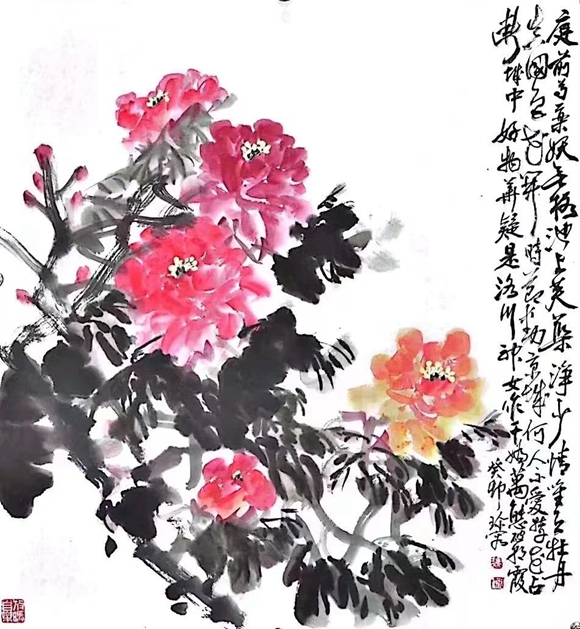 庭前芍葯妖無格池上芙蕖淨少情唯有牡丹
真國色花開時節动京城何人不愛牡丹花占
斷城中好物華疑是洛川神女作千嬌萬態破朝霞
癸卯